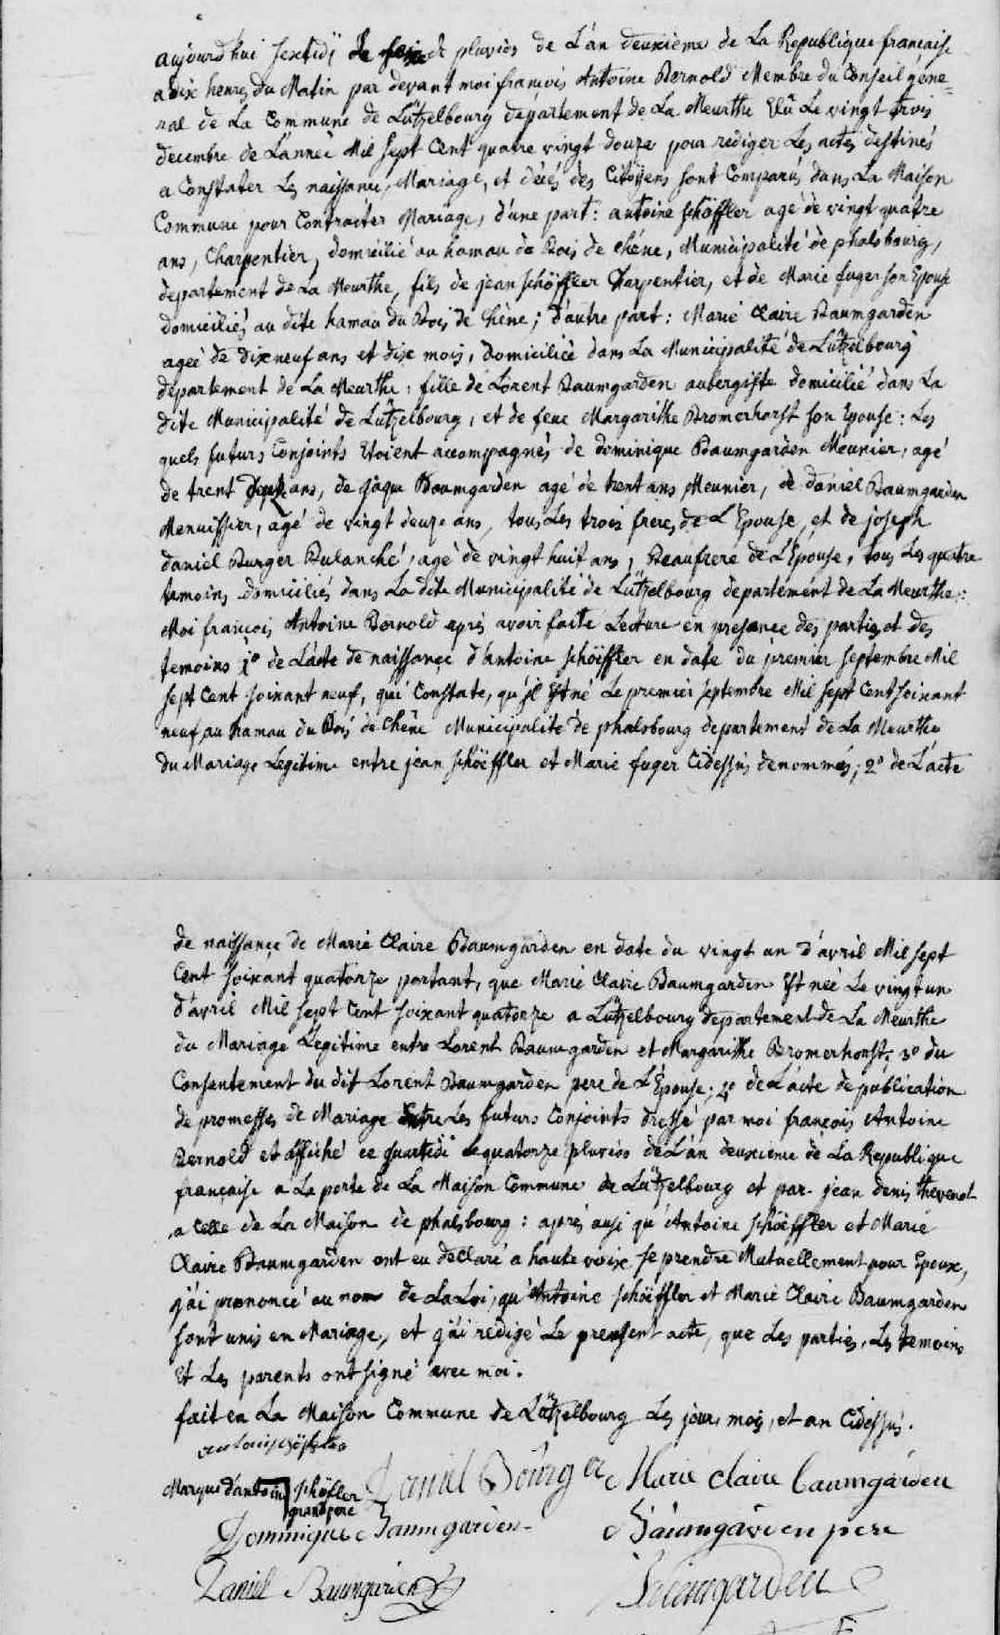 aujourd'hui sextidÿ de pluviôs de L'an deuxième de La Republique française
a dix heures du Matin par devant moi francois Antoine Bernold Membre du Conseil géne=
ral de La Commune de Lützelbourg département de La Meurthe Elû Le vingt trois
decembre de L'année Mil sept Cent quatre vingt douze pour rediger Les actes destinés
a Constater Les naissances, Mariage, et décés des Citöÿens sont Comparus dans La Maison
Commune pour Contracter Mariage, d'une part : antoine schöffler agé de vingt quatre
ans, Charpentier, domicilié au hamau du Bois de Chêne, Municipalité de phalsbourg,
departement de La Meurthe, fils de jean schöffler Charpentier, et de Marie fuger son Epouse
domiciliés au dite hamau du Bois de Chêne ; d'autre part : Marie Claire Baumgarden
ageé de dix neuf ans et dix mois, domiciliée dans La Municipalité de Lützelbourg
département de La Meurthe, fille de Lorent Baumgarden aubergiste domicilié dans La
dite Municipalité de Lützelbourg, et de feue Margarithe Bromerhorst son Epouse : Les
quels futurs Conjoints Etoient accompagnés de dominique Baumgarden Meunier, agé
de trent ans, de jâque Baumgarden agé de trent ans Meunier, de daniel Baumgarden
Menuissier, agé de vingt deuze ans, tous Les trois freres de L'Epouse, et de joseph
daniel Burger Bulanché, agé de vingt huit ans, Beaufrere de L'Epouse, tous Les quatre
temoins domiciliés dans La dite Municipalité de Lützelbourg département de La Meurthe :
Moi francois Antoine Bernold aprés avoir faite Lecture en presance des parties et des
temoins 1º de L'acte de naissance d'antoine schöeffler en date du premier septembre Mil
sept Cent soixant neuf, qui Constate, qu'il Est né Le premier septembre Mil sept Cent soixant
neuf au hamau du Bois de Chêne Municipalité de phalsbourg departement de La Meurthe
du Mariage Legitime entre jean schöeffler et Marie fuger Cidessus denommés ; 2º de L'acte
de naissance de Marie Claire Baumgarden en date du vingt un d'avril Mil sept
Cent soixant quatorze portant, que Marie Claire Baumgarden Est neé Le vingt un
d'avril Mil sept Cent soixant quatorze a Lützelbourg departement de La Meurthe
du Mariage Légitime entre Lorent Baumgarden et Margarithe Bromerhorst. 3º du
Consentement du dit Lorent Baumgarden pere de L'Epouse ; 4º de L'acte de publication
de promesses de Mariage Entre Les futurs Conjoints dressé par moi françois Antoine
Bernold et affiché ce quartidi Le quatorze pluviôs de L'an deuxieme de La Republique
française a La porte de La Maison Commune de Lützelbourg et par jean denis thevenot
a Celle de La Maison de phalsbourg : aprés ausi qu'Antoine schöeffler et Marie
Claire Baumgarden ont eu declaré a haute voix se prendre Mutuellement pour Epoux,
j'ai prononcé au nom de La Loi, qu'Antoine schöeffler et Marie Claire Baumgarden
sont unis en Mariage, et j'ai redigé Le present acte, que Les parties, Les temoins
Et Les parents ont signé avec moi.
fait en La Maison Commune de Lützelbourg Les jour, mois, et an Cidessus.
Marque d'antoine schöfler
grand pere
Daniel Bourger Marie claire baumgarden
Dominique Baumgarden Baumgarden pere
Daniel Baumgarden Baumgarden